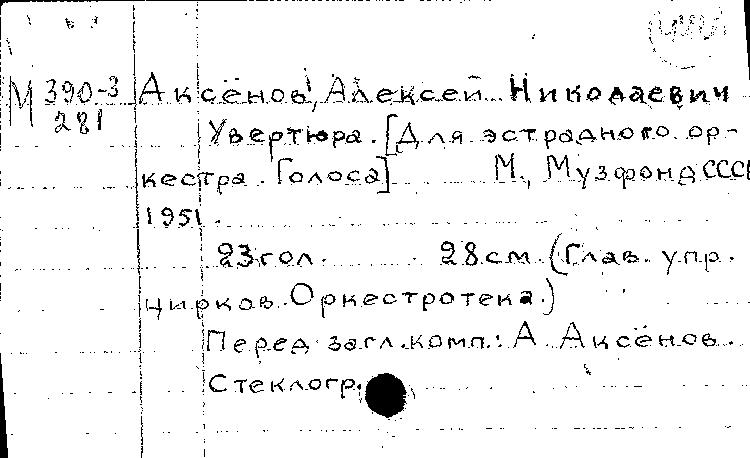 М 390-3 Аксёнов, Алексей Николаевич
281
Увертюра. [Для эстрадного ор-
кестра. Голоса] М., Музфонд СССР
1951.
23 гол. 28 см. (Глав. упр.
цирков. Оркестротека.)
Перед загл. комп.: А. Аксёнов.
Стеклогр.